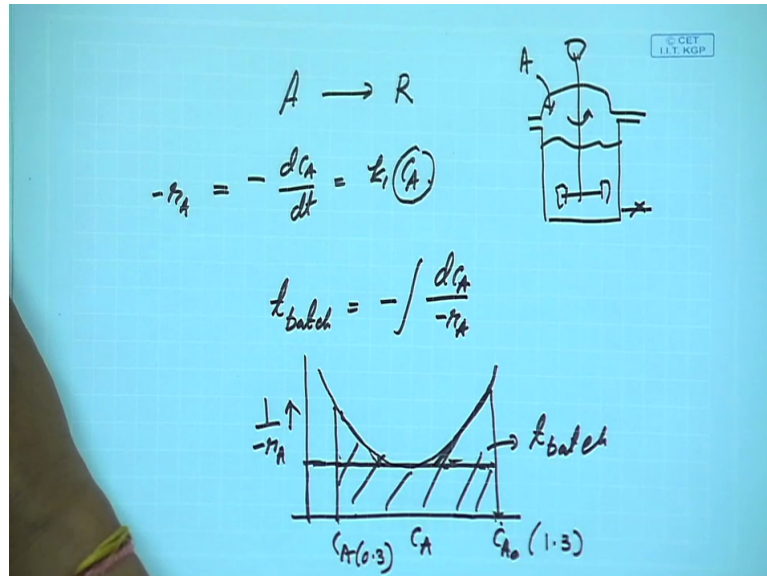 © CET
I.I.T. KGP
A
A → R
-r_A = - dC_A/dt = k_1 C_A
t_batch = -∫ dC_A/-r_A
1/-r_A ↑
→ t_batch
C_A(0.3) C_A C_A0 (1.3)